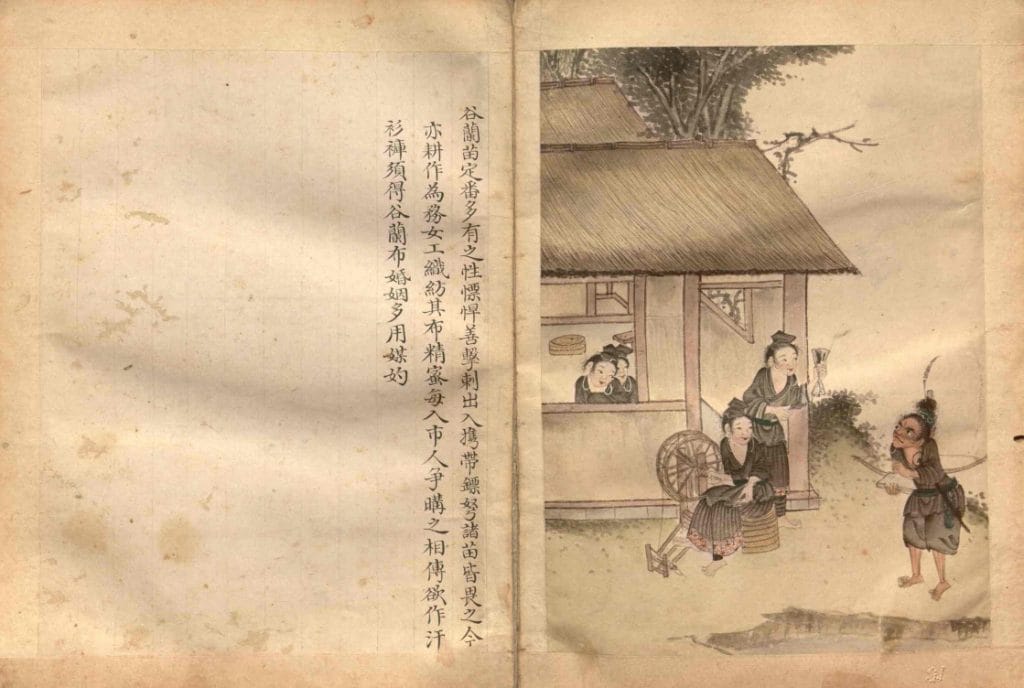 谷蘭苗定番多有之性慓悍善擊刺出入擕帶鏢弩諸苗皆畏之今
亦耕作為務女工織紡其布精密每入市人爭購之相傳欲作汗
衫褲須得谷蘭布婚姻多用媒妁